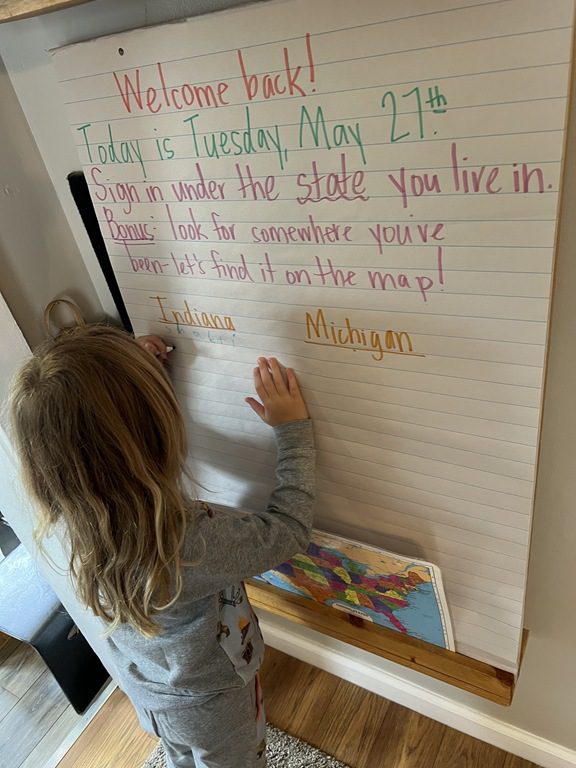 Welcome back!
Today is Tuesday, May 27th.
Sign in under the state you live in.
Bonus: look for somewhere you've
been - let's find it on the map!
Indiana Michigan